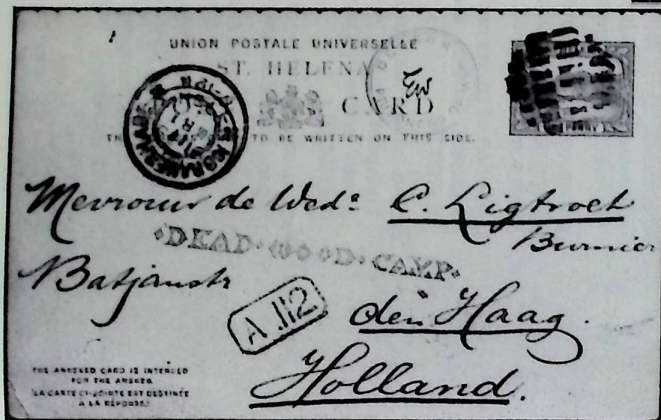 UNION POSTALE UNIVERSELLE
ST. HELENA
CARD
TO BE WRITTEN ON THIS SIDE.
'S GRAVENHAGE
Mevrouw de Wed: C. Ligtvoet
Burnier
DEADWOOD CAMP
Batjanstr
A J12
den Haag.
Holland.
THE ANNEXED CARD IS INTENDED
FOR THE ANSWER.
LA CARTE CI-JOINTE EST DESTINÉE
À LA RÉPONSE.